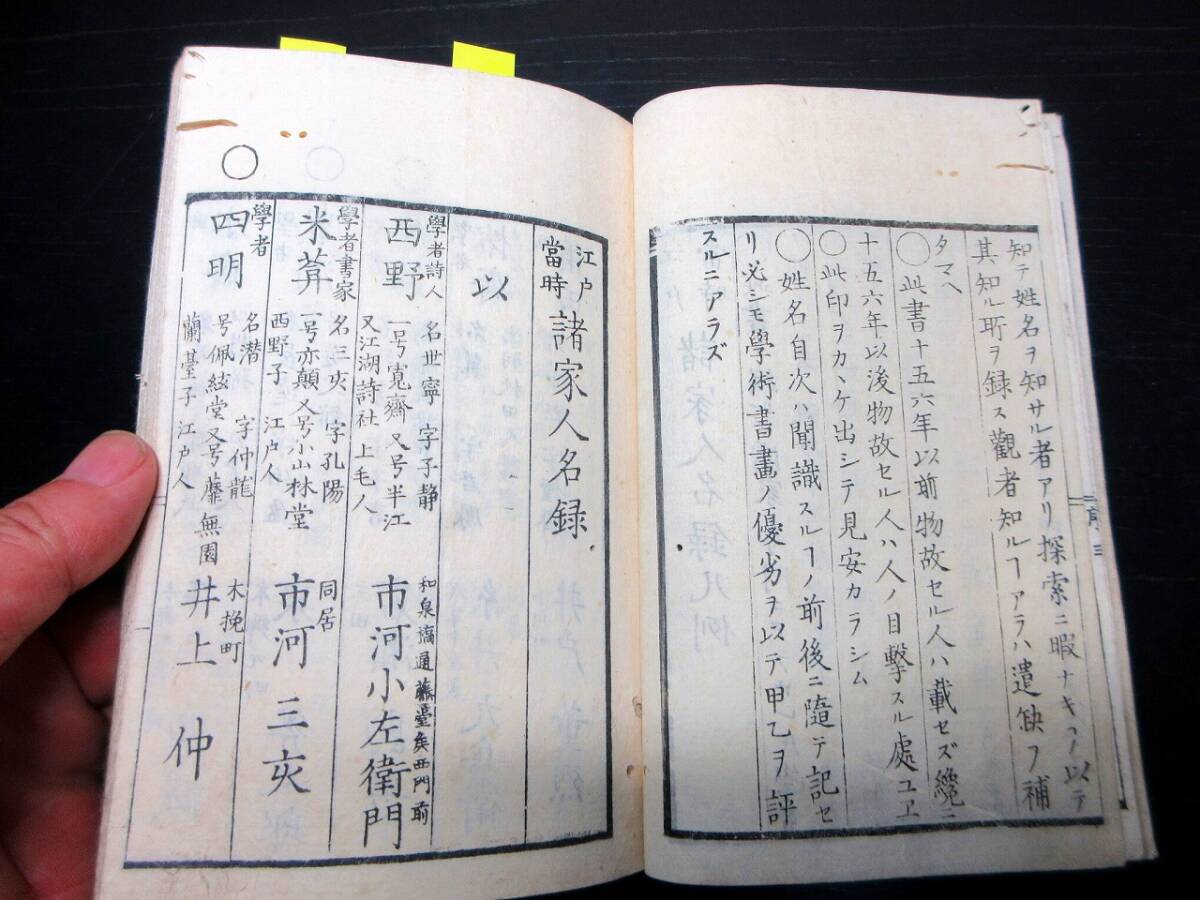 知テ姓名ヲ知サル者アリ探索ニ暇ナキヿヲ以テ
其知ル所ヲ録ス觀者知ルヿアラハ遺缺ヲ補
タマヘ
〇此書十五六年以前物故セル人ハ載セズ纔ニ
十五六年以後物故セル人ハ人ノ目撃スル處ユヱ
〇此印ヲカヽケ出シテ見安カラシム
〇姓名自次ハ聞識スルヿノ前後ニ隨テ記セ
リ必シモ學術書畫ノ優劣ヲ以テ甲乙ヲ評
スルニアラズ
江戸當時諸家人名録
以
學者詩人
西野
名世寧 字子静
一号寛齋 又号半江
又江湖詩社 上毛人
和泉橋通藤堂矦西門前
市河小左衛門
學者書家
米葊
名三亥 字孔陽
一号亦顛 又号小山林堂
西野子 江戸人
同居
市河三亥
〇
學者
四明
名潜 字仲龍
号佩絃堂 又号蘼蕪園
蘭臺子 江戸人
木挽町
井上仲